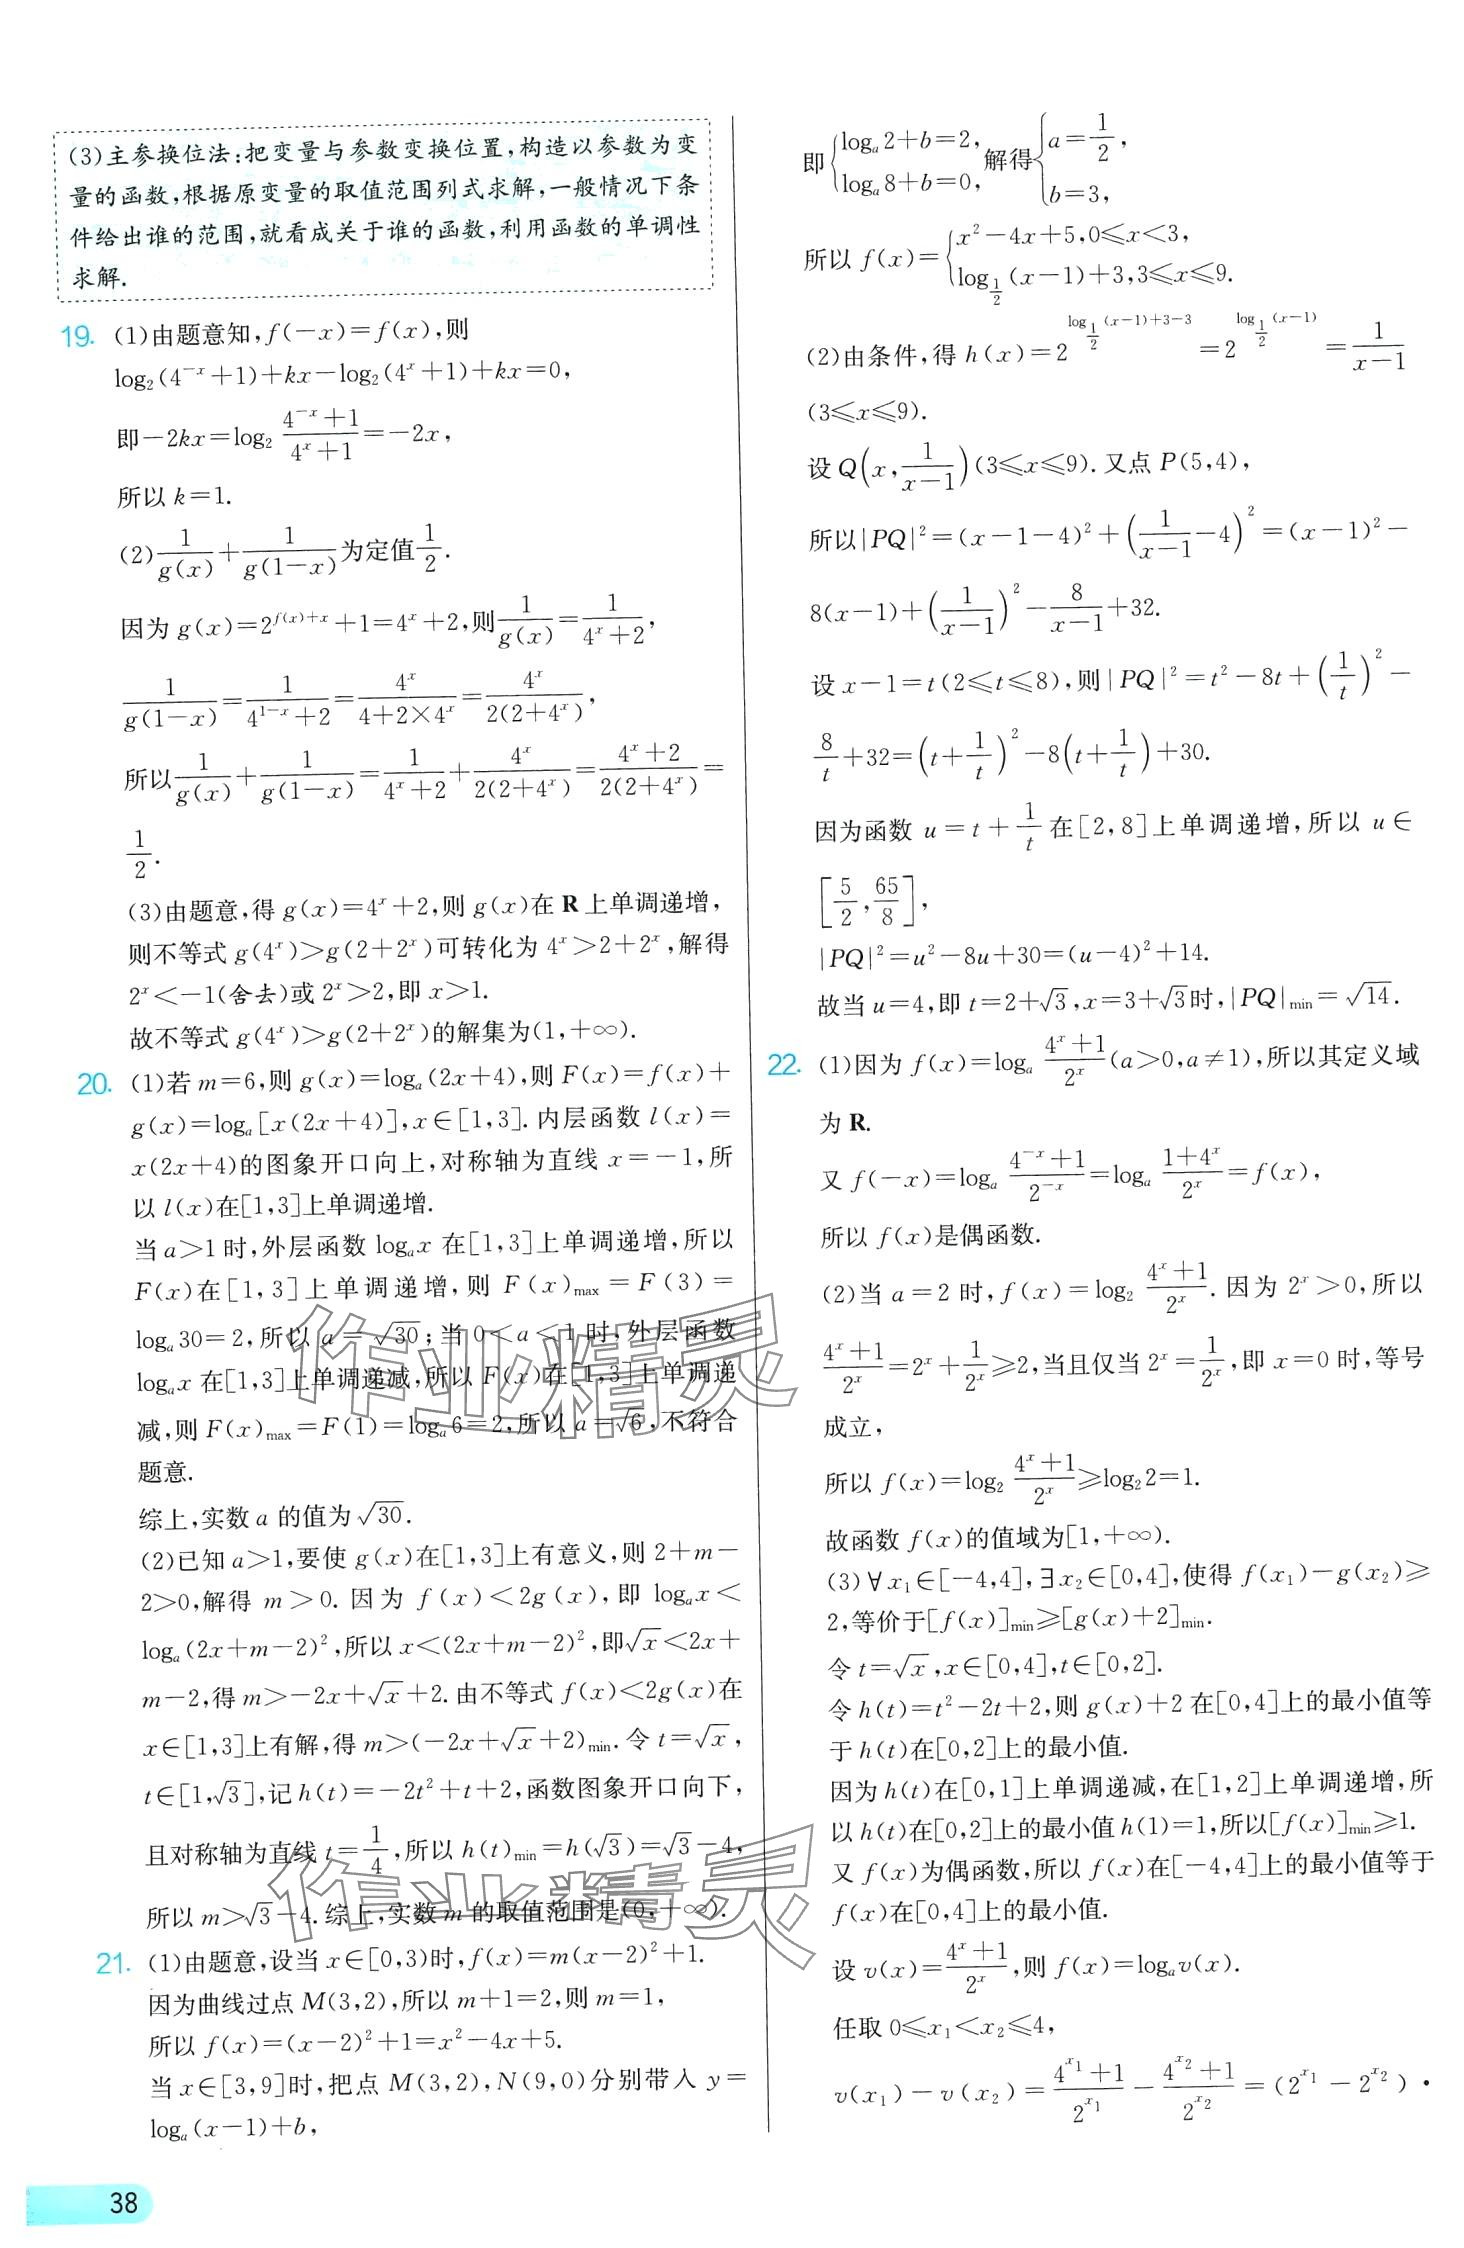 (3)主参换位法:把变量与参数变换位置,构造以参数为变
量的函数,根据原变量的取值范围列式求解,一般情况下条
件给出谁的范围,就看成关于谁的函数,利用函数的单调性
求解.
19. (1)由题意知,f(−x)=f(x),则
log₂(4⁻ˣ+1)+kx−log₂(4ˣ+1)+kx=0,
即−2kx=log₂ (4⁻ˣ+1)/(4ˣ+1)=−2x,
所以 k=1.
(2) 1/g(x)+1/g(1−x)为定值 1/2.
因为 g(x)=2^(f(x)+x)+1=4ˣ+2,则 1/g(x)=1/(4ˣ+2),
1/g(1−x)=1/(4^(1−x)+2)=4ˣ/(4+2×4ˣ)=4ˣ/(2(2+4ˣ)),
所以 1/g(x)+1/g(1−x)=1/(4ˣ+2)+4ˣ/(2(2+4ˣ))=(4ˣ+2)/(2(2+4ˣ))=
1/2.
(3)由题意,得 g(x)=4ˣ+2,则 g(x)在 R 上单调递增,
则不等式 g(4ˣ)>g(2+2ˣ)可转化为 4ˣ>2+2ˣ,解得
2ˣ<−1(舍去)或 2ˣ>2,即 x>1.
故不等式 g(4ˣ)>g(2+2ˣ)的解集为(1,+∞).
20. (1)若 m=6,则 g(x)=logₐ(2x+4),则 F(x)=f(x)+
g(x)=logₐ[x(2x+4)],x∈[1,3]. 内层函数 l(x)=
x(2x+4)的图象开口向上,对称轴为直线 x=−1,所
以 l(x)在[1,3]上单调递增.
当 a>1 时,外层函数 logₐx 在[1,3]上单调递增,所以
F(x)在[1,3]上单调递增,则 F(x)max=F(3)=
logₐ30=2,所以 a=√30;当 0<a<1 时,外层函数
logₐx 在[1,3]上单调递减,所以 F(x)在[1,3]上单调递
减,则 F(x)max=F(1)=logₐ6=2,所以 a=√6,不符合
题意.
综上,实数 a 的值为√30.
(2)已知 a>1,要使 g(x)在[1,3]上有意义,则 2+m−
2>0,解得 m>0. 因为 f(x)<2g(x),即 logₐx<
logₐ(2x+m−2)²,所以 x<(2x+m−2)²,即√x<2x+
m−2,得 m>−2x+√x+2. 由不等式 f(x)<2g(x)在
x∈[1,3]上有解,得 m>(−2x+√x+2)min. 令 t=√x,
t∈[1,√3],记 h(t)=−2t²+t+2,函数图象开口向下,
且对称轴为直线 t=1/4,所以 h(t)min=h(√3)=√3−4,
所以 m>√3−4. 综上,实数 m 的取值范围是(0,+∞).
21. (1)由题意,设当 x∈[0,3)时,f(x)=m(x−2)²+1.
因为曲线过点 M(3,2),所以 m+1=2,则 m=1,
所以 f(x)=(x−2)²+1=x²−4x+5.
当 x∈[3,9]时,把点 M(3,2),N(9,0)分别带入 y=
logₐ(x−1)+b,
即{logₐ2+b=2, logₐ8+b=0, 解得{a=1/2, b=3,
所以 f(x)={x²−4x+5,0⩽x<3, log_(1/2)(x−1)+3,3⩽x⩽9.
(2)由条件,得 h(x)=2^(log_(1/2)(x−1)+3−3)=2^(log_(1/2)(x−1))=1/(x−1)
(3⩽x⩽9).
设 Q(x,1/(x−1))(3⩽x⩽9). 又点 P(5,4),
所以|PQ|²=(x−1−4)²+(1/(x−1)−4)²=(x−1)²−
8(x−1)+(1/(x−1))²−8/(x−1)+32.
设 x−1=t(2⩽t⩽8),则|PQ|²=t²−8t+(1/t)²−
8/t+32=(t+1/t)²−8(t+1/t)+30.
因为函数 u=t+1/t 在[2,8]上单调递增,所以 u∈
[5/2,65/8],
|PQ|²=u²−8u+30=(u−4)²+14.
故当 u=4,即 t=2+√3,x=3+√3时,|PQ|min=√14.
22. (1)因为 f(x)=logₐ (4ˣ+1)/2ˣ(a>0,a≠1),所以其定义域
为 R.
又 f(−x)=logₐ (4⁻ˣ+1)/2⁻ˣ=logₐ (1+4ˣ)/2ˣ=f(x),
所以 f(x)是偶函数.
(2)当 a=2 时,f(x)=log₂ (4ˣ+1)/2ˣ. 因为 2ˣ>0,所以
(4ˣ+1)/2ˣ=2ˣ+1/2ˣ⩾2,当且仅当 2ˣ=1/2ˣ,即 x=0 时,等号
成立,
所以 f(x)=log₂ (4ˣ+1)/2ˣ⩾log₂2=1.
故函数 f(x)的值域为[1,+∞).
(3)∀x₁∈[−4,4],∃x₂∈[0,4],使得 f(x₁)−g(x₂)⩾
2,等价于[f(x)]min⩾[g(x)+2]min.
令 t=√x,x∈[0,4],t∈[0,2].
令 h(t)=t²−2t+2,则 g(x)+2 在[0,4]上的最小值等
于 h(t)在[0,2]上的最小值.
因为 h(t)在[0,1]上单调递减,在[1,2]上单调递增,所
以 h(t)在[0,2]上的最小值 h(1)=1,所以[f(x)]min⩾1.
又 f(x)为偶函数,所以 f(x)在[−4,4]上的最小值等于
f(x)在[0,4]上的最小值.
设 v(x)=(4ˣ+1)/2ˣ,则 f(x)=logₐv(x).
任取 0⩽x₁<x₂⩽4,
v(x₁)−v(x₂)=(4^x₁+1)/2^x₁−(4^x₂+1)/2^x₂=(2^x₁−2^x₂)·
作业精灵
作业精灵
38